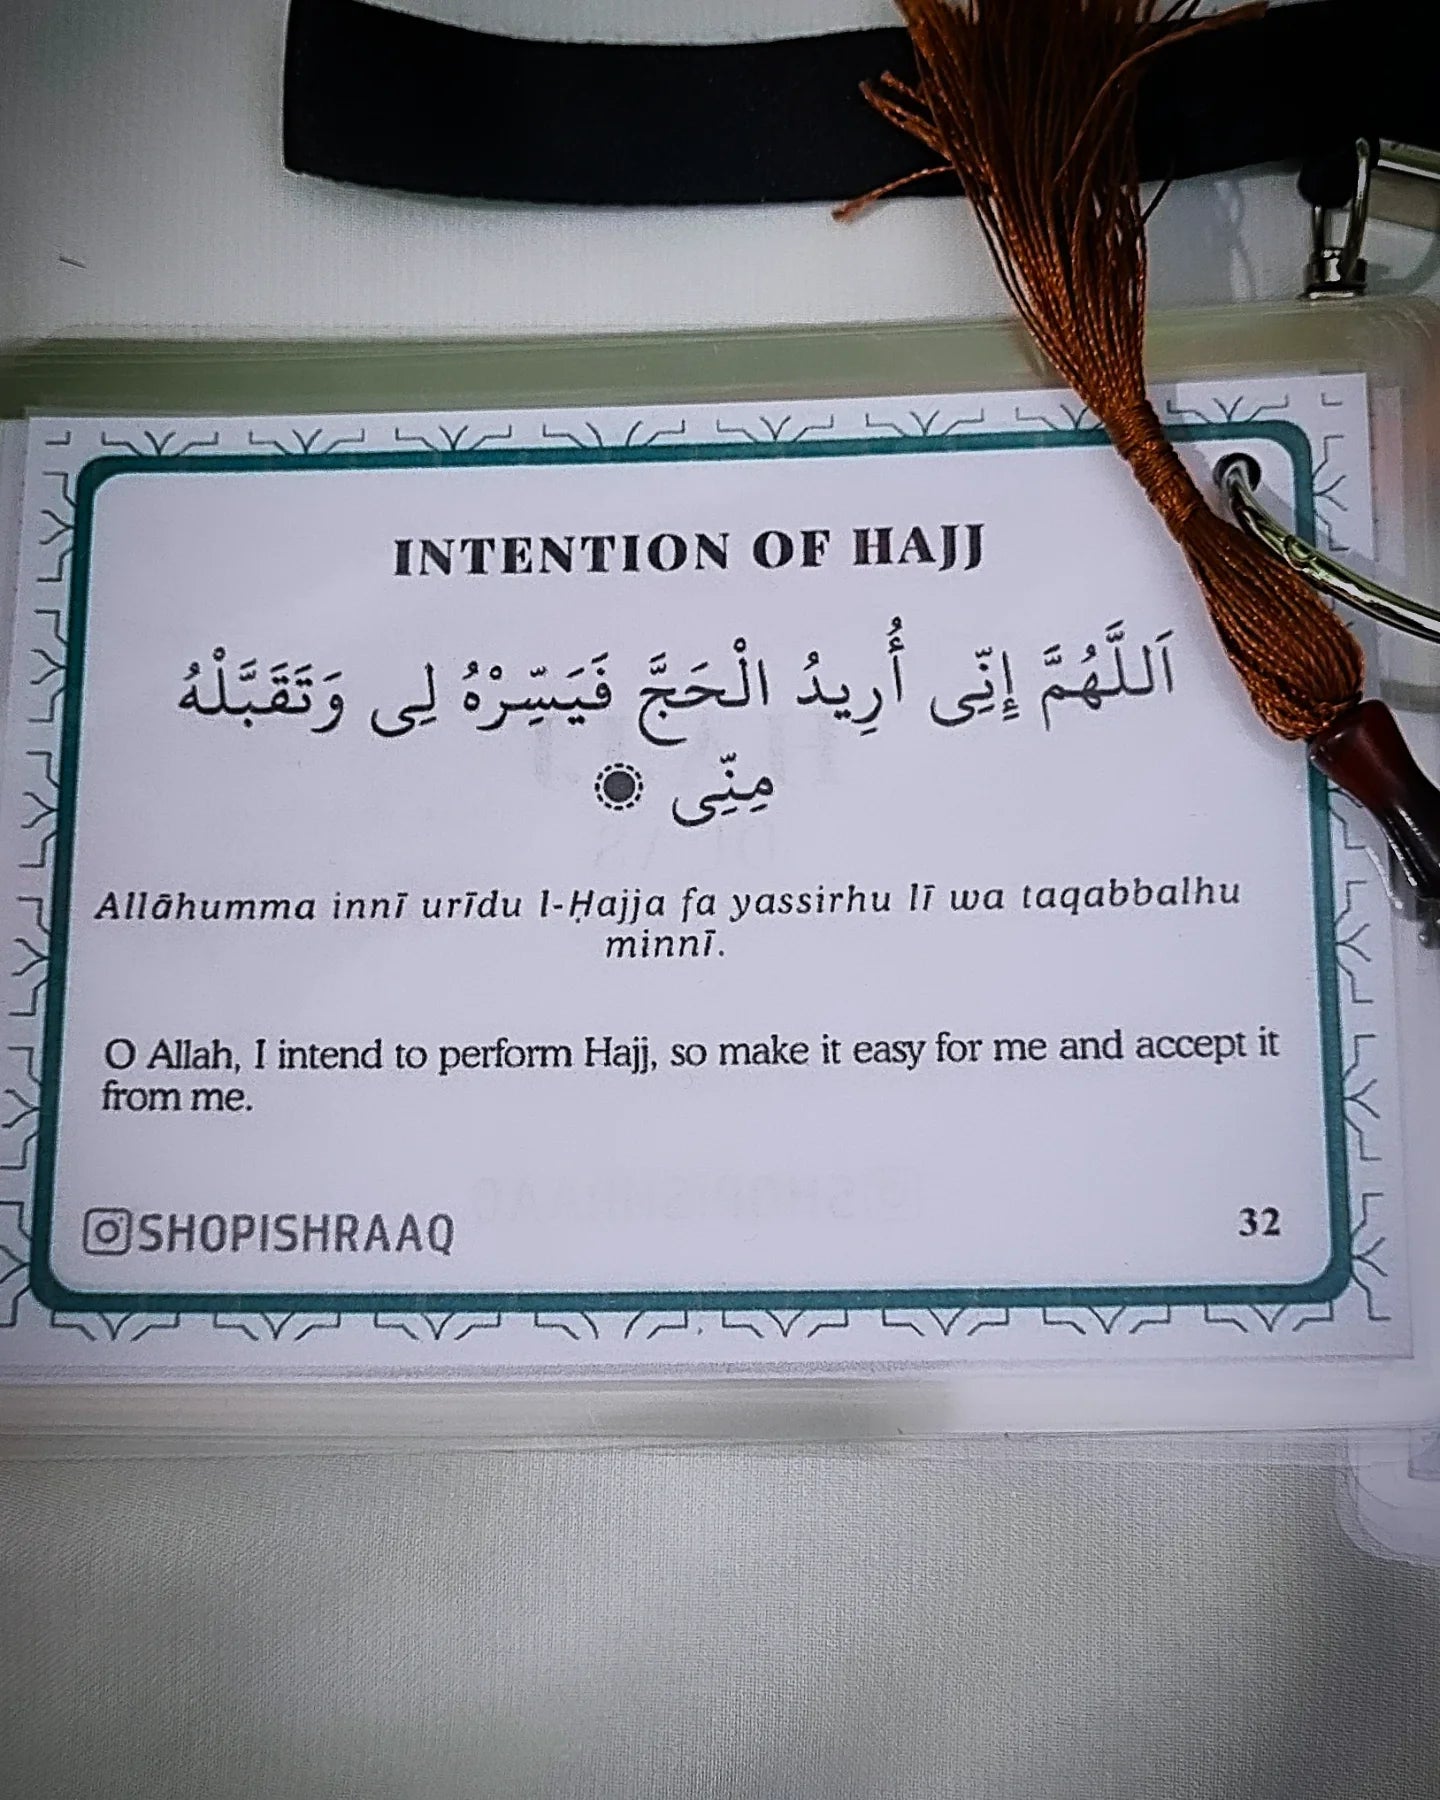 INTENTION OF HAJJ
اَللَّهُمَّ إِنِّى أُرِيدُ الْحَجَّ فَيَسِّرْهُ لِى وَتَقَبَّلْهُ
مِنِّى
Allāhumma innī urīdu l-Ḥajja fa yassirhu lī wa taqabbalhu
minnī.
O Allah, I intend to perform Hajj, so make it easy for me and accept it
from me.
SHOPISHRAAQ
32